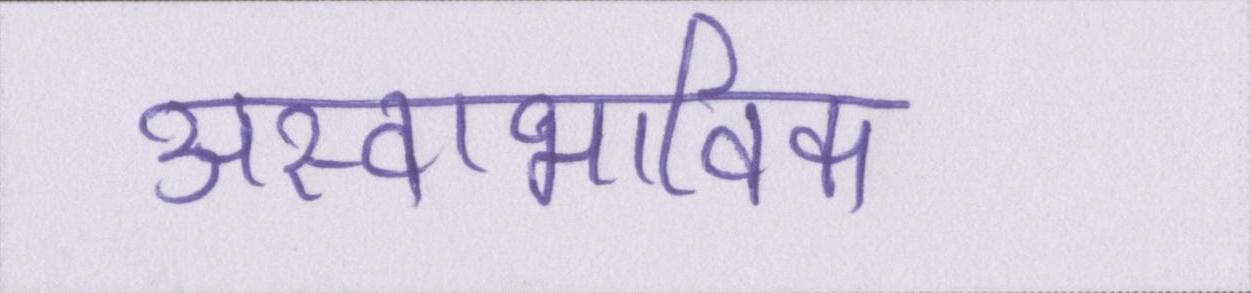 अस्वाभाविक